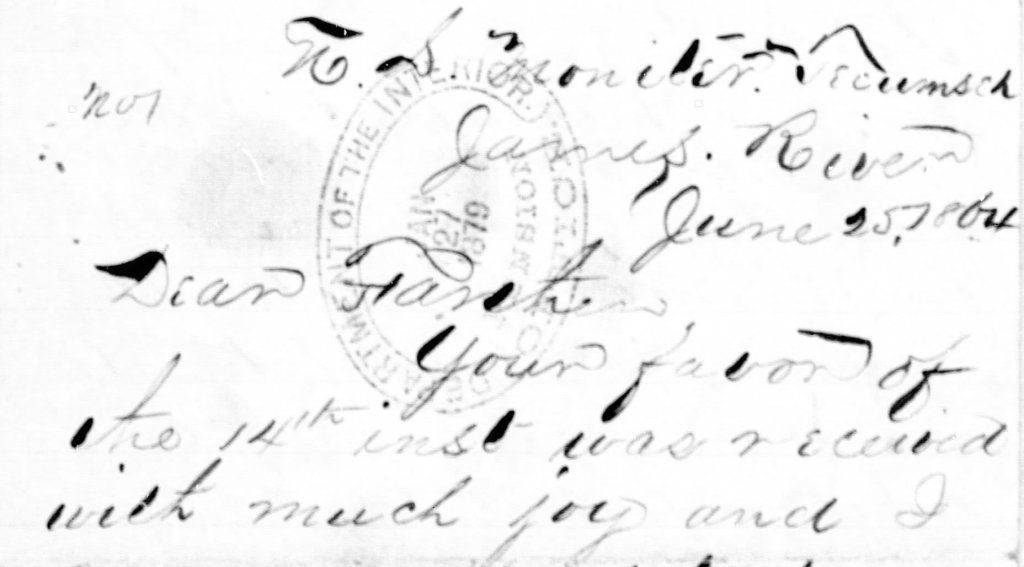 U. S. Moniter. Tecumseh
No 1
James. River
June 25, 1864
DEPARTMENT OF THE INTERIOR.
PENSION
JAN
27
1879
Dear Farther
Your favor of
the 14th inst was received
with much joy and I